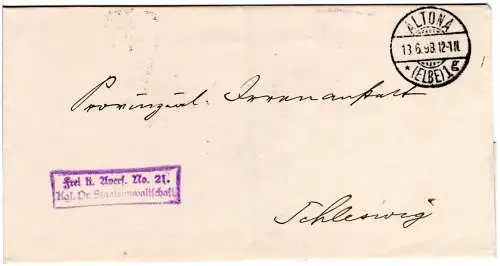 ALTONA
13.6.98.12-1N.
* (ELBE) 1g
Provinzial-Irrenanstalt
Frei lt. Avers. No. 21.
Kgl. Pr. Staatsanwaltschaft
Schleswig